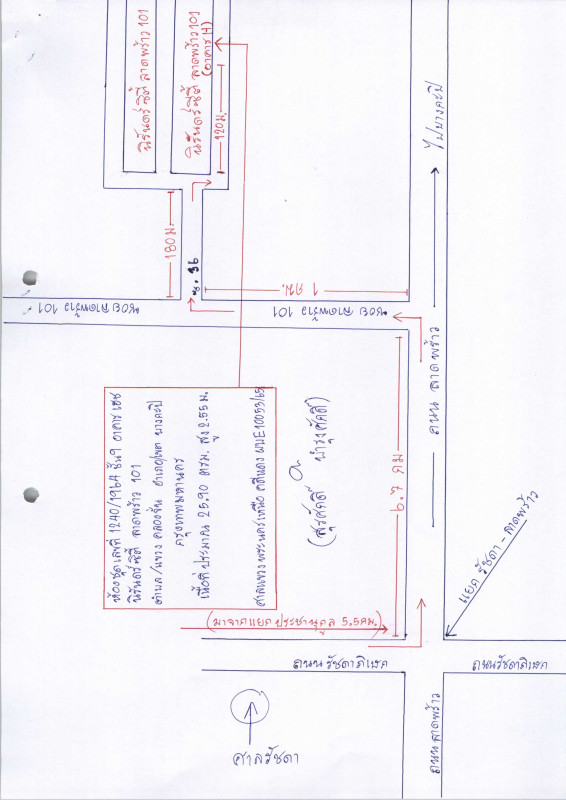 นิรันดร์ซิตี้ ลาดพร้าว 101
นิรันดร์ซิตี้ ลาดพร้าว 101
(อาคาร H)
120 ม.
180 ม.
ซ. 36
1 กม.
ซอย ลาดพร้าว 101
ซอย ลาดพร้าว 101
ไปบางกะปิ
ถนน ลาดพร้าว
6.7 กม
ห้องชุดเลขที่ 1240/1964 ชั้น 9 อาคาร เอช
นิรันดร์ซิตี้ ลาดพร้าว 101
ตำบล/แขวง คลองจั่น อำเภอ/เขต บางกะปิ
กรุงเทพมหานคร
เนื้อที่ ประมาณ 25.90 ตรม. สูง 2.55 ม.
ศาลแขวงพระนครเหนือ คดีแดง ผบE10053/65
(สุรศักดิ์ บำรุงศักดิ์)
(มาจากแยก ประชานุกูล 5.5 กม.)
แยก รัชดา - ลาดพร้าว
ถนน รัชดาภิเษก
ถนนรัชดาภิเษก
ถนนลาดพร้าว
ศาลรัชดา